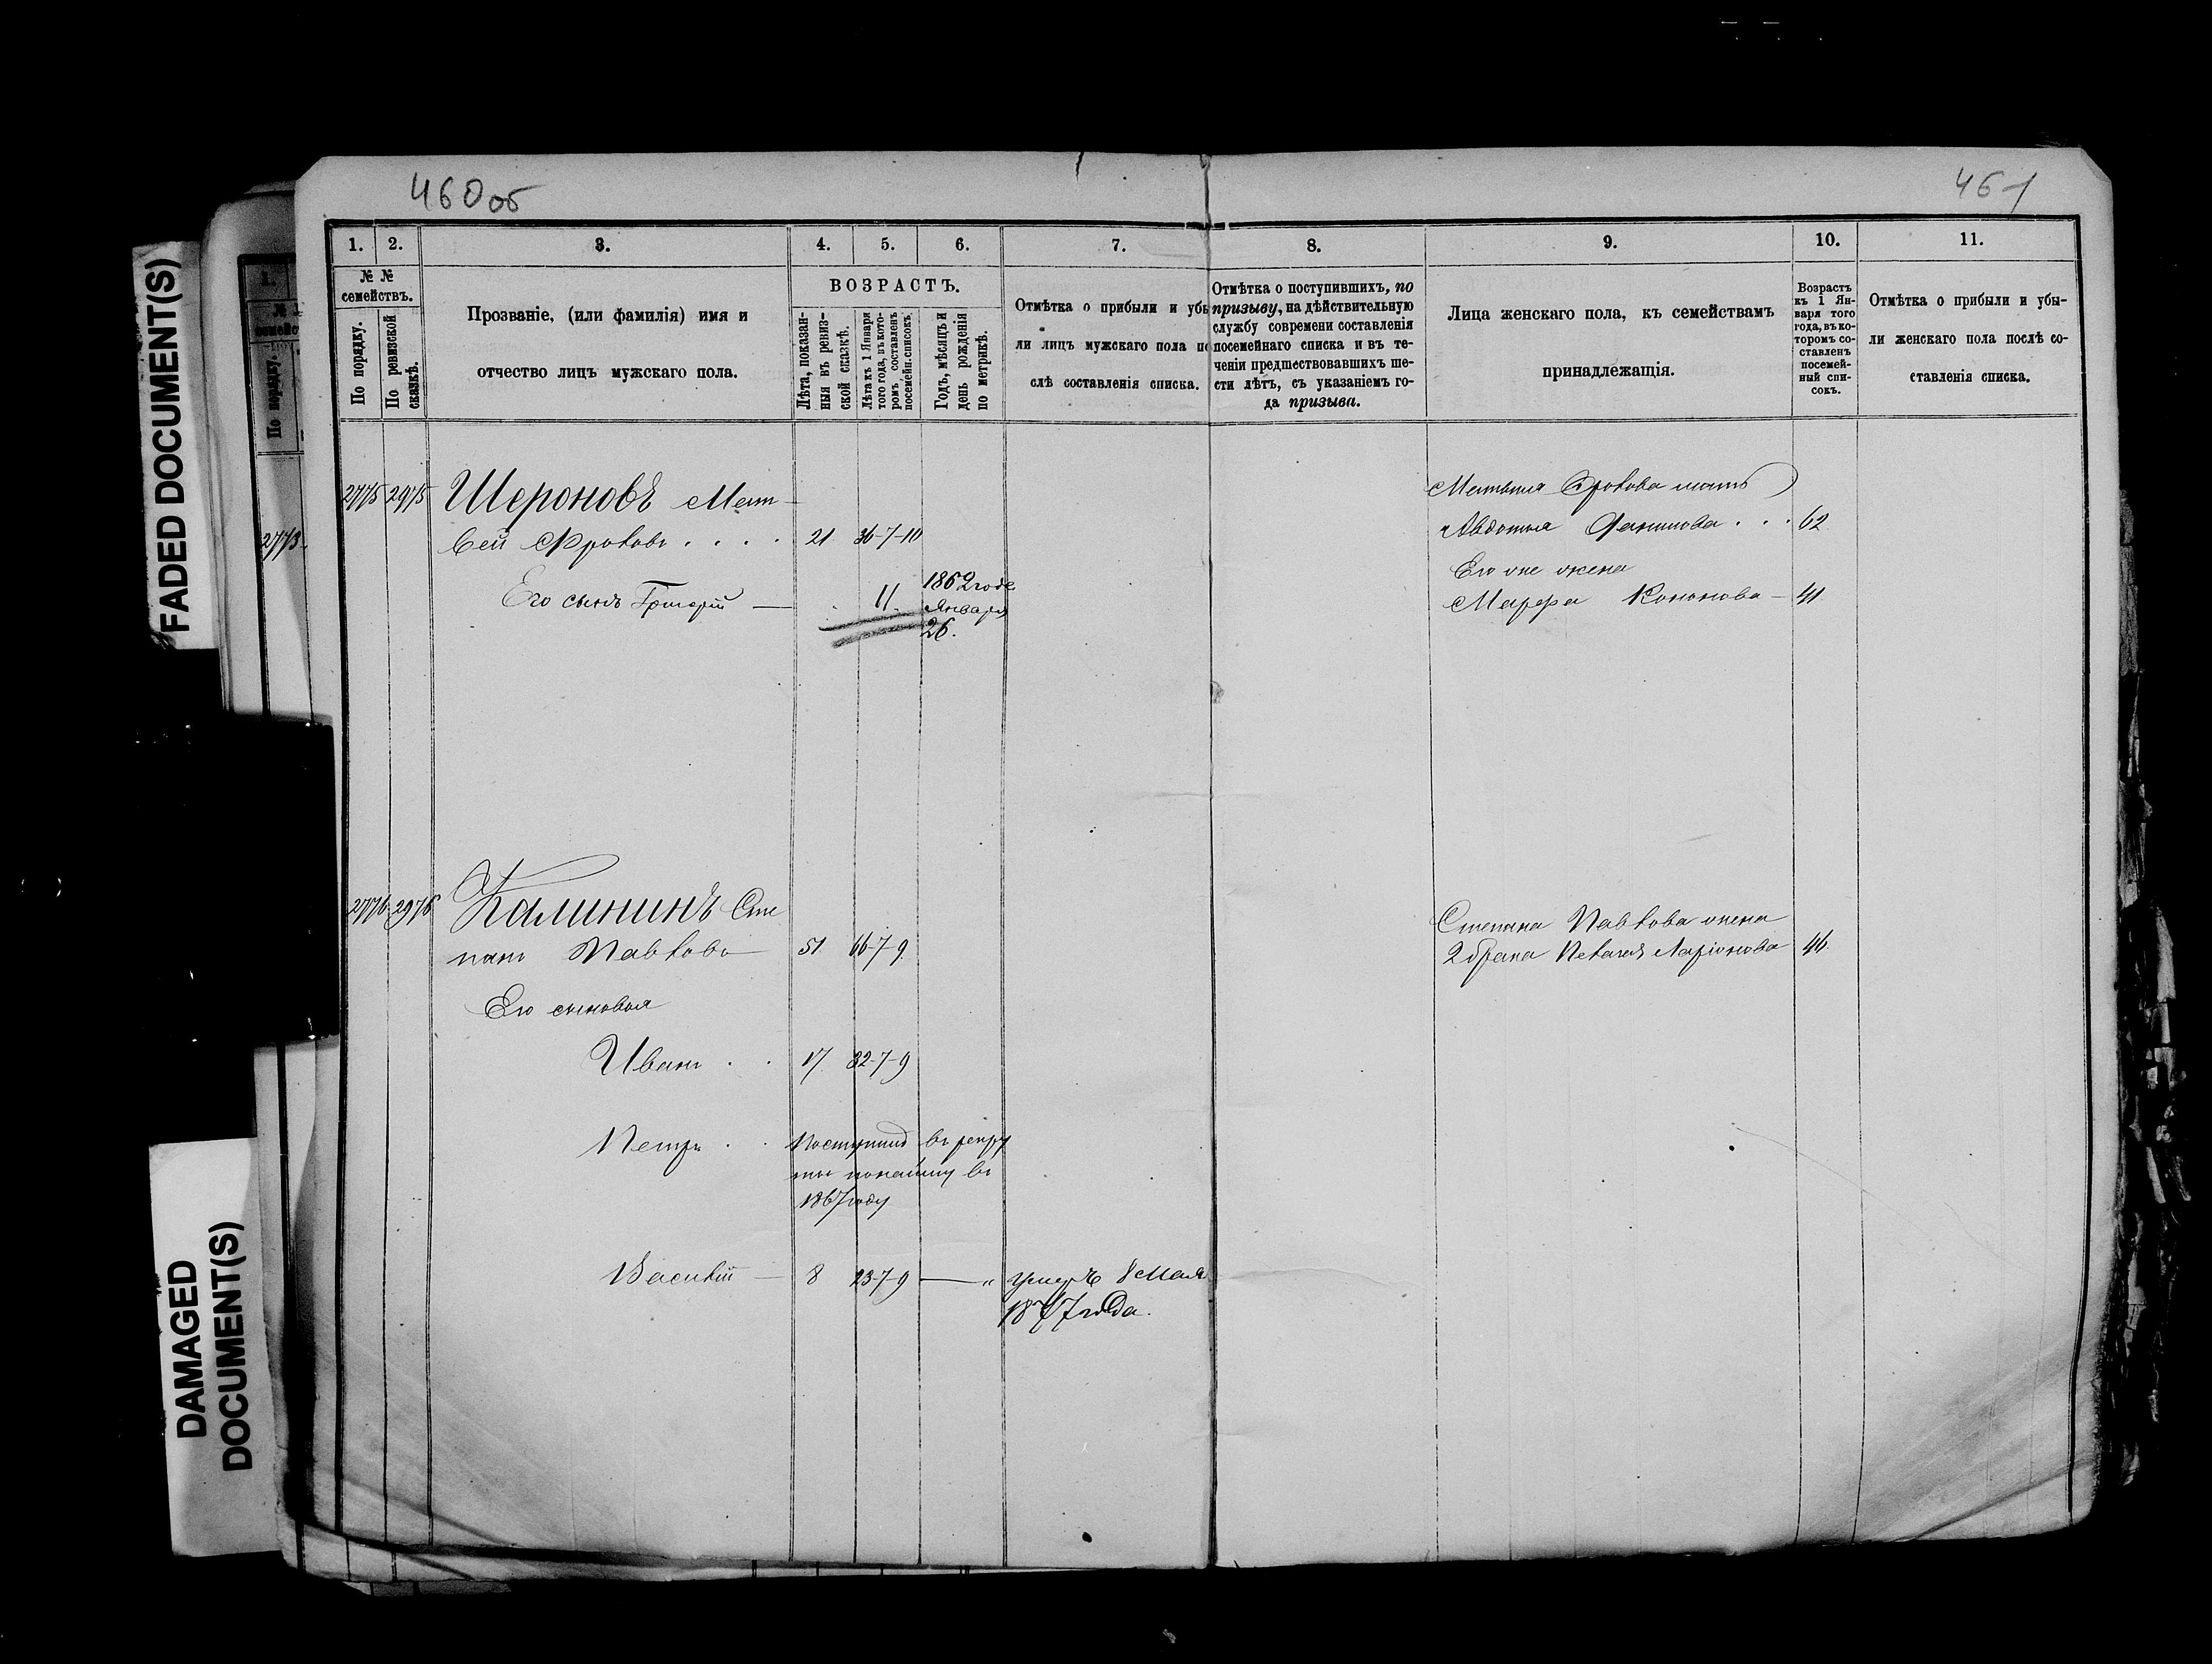 FADED DOCUMENT(S)
DAMAGED
DOCUMENT(S)
460об
461
1. 2. 3. 4. 5. 6. 7. 8. 9. 10. 11.
№ №
семействъ.
По порядку.
По ревизской
сказкѣ.
Прозваніе, (или фамилія) имя и
отчество лицъ мужскаго пола.
ВОЗРАСТЪ.
Лѣта, показан-
ныя въ ревиз-
ской сказкѣ.
Лѣта къ 1 Января
того года, въ кото-
ромъ составленъ
посемейн. списокъ
Годъ, мѣсяцъ и
день рожденія
по метрикѣ.
Отмѣтка о прибыли и убы
ли лицъ мужскаго пола по
слѣ составленія списка.
Отмѣтка о поступившихъ, по
призыву, на дѣйствительную
службу современи составленія
посемейнаго списка и въ те-
ченіи предшествовавшихъ ше-
сти лѣтъ, съ указаніемъ го-
да призыва.
Лица женскаго пола, къ семействамъ
принадлежащія.
Возрастъ
къ 1 Ян-
варя того
года, въ ко-
торомъ со-
ставленъ
посемей-
ный спи-
сокъ.
Отмѣтка о прибыли и убы-
ли женскаго пола послѣ со-
ставленія списка.
2773
2775 2975 Шероновъ Мат-
вей Фроловъ . . . . 21 36-7-10
Его сынъ Григорій — 11. 1862 года
Января
26.
Матвѣя Фролова мать
Авдотья Данилова . . . 62
Его же жена
Марфа Кононова — 41
2776 2976 Калининъ Сте
панъ Павловъ — 51 66-7-9.
Его сыновья
Иванъ . . 17. 32-7-9
Петръ . . Поступилъ въ рекру
ты по найму въ
1867 году
Василій — 8 23-7-9 — " умеръ 8 Мая
1877 года.
Степана Павлова жена
2 брака Пелагея Ларіонова 44.